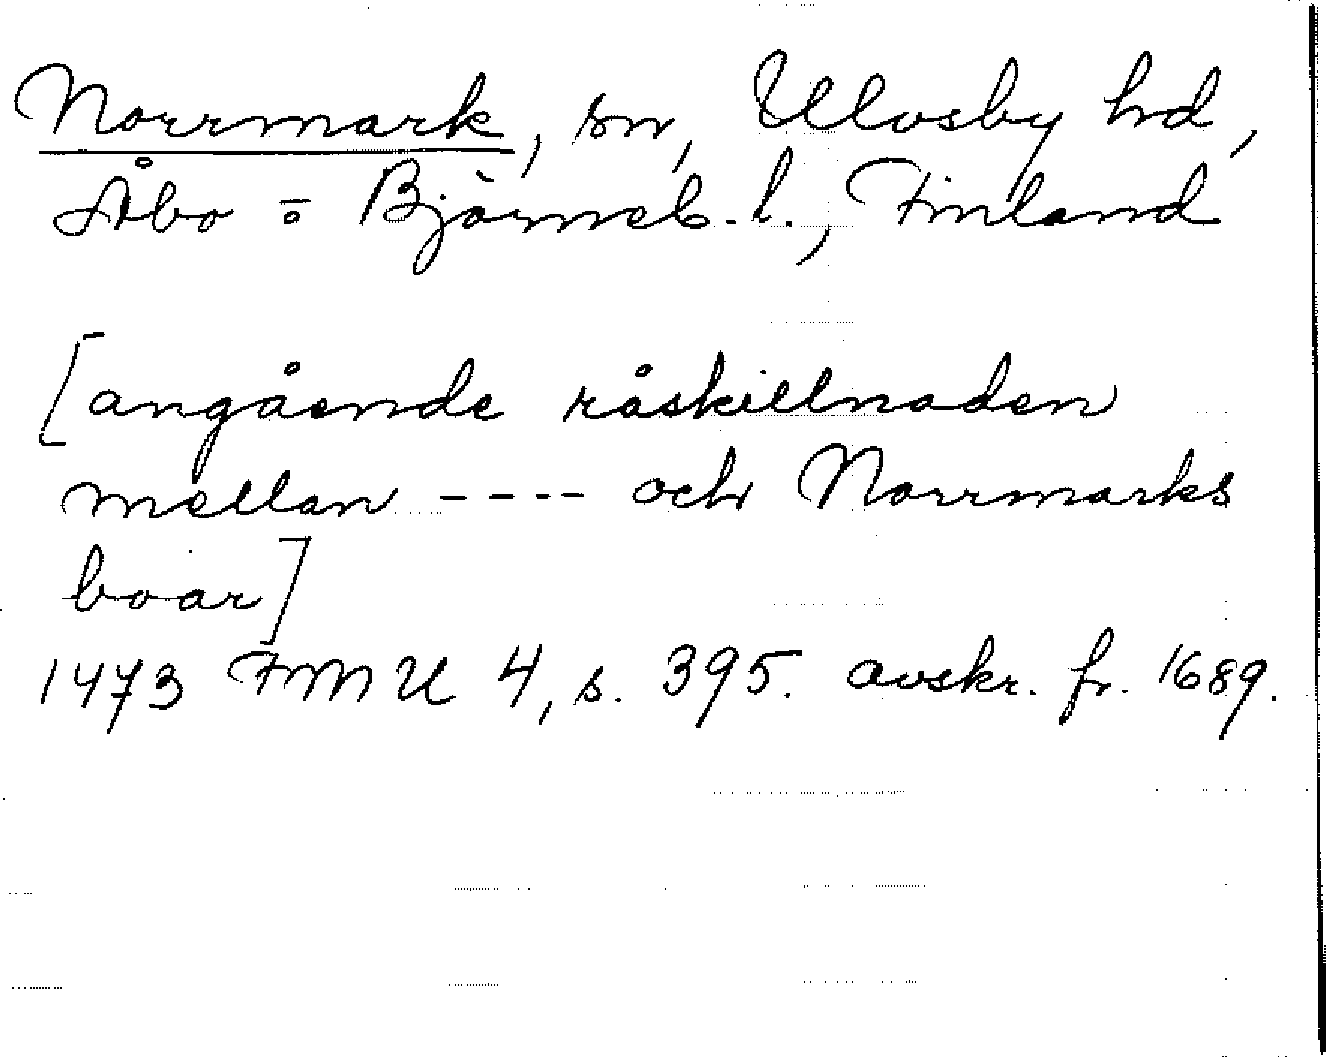 Norrmark, sn, Ulvsby hd,
Åbo - o Björneb. l., Finland
[angående råskillnaden
mellan ---- och Norrmarks
boar]
1473 FMU 4, s. 395. avskr. fr. 1689.